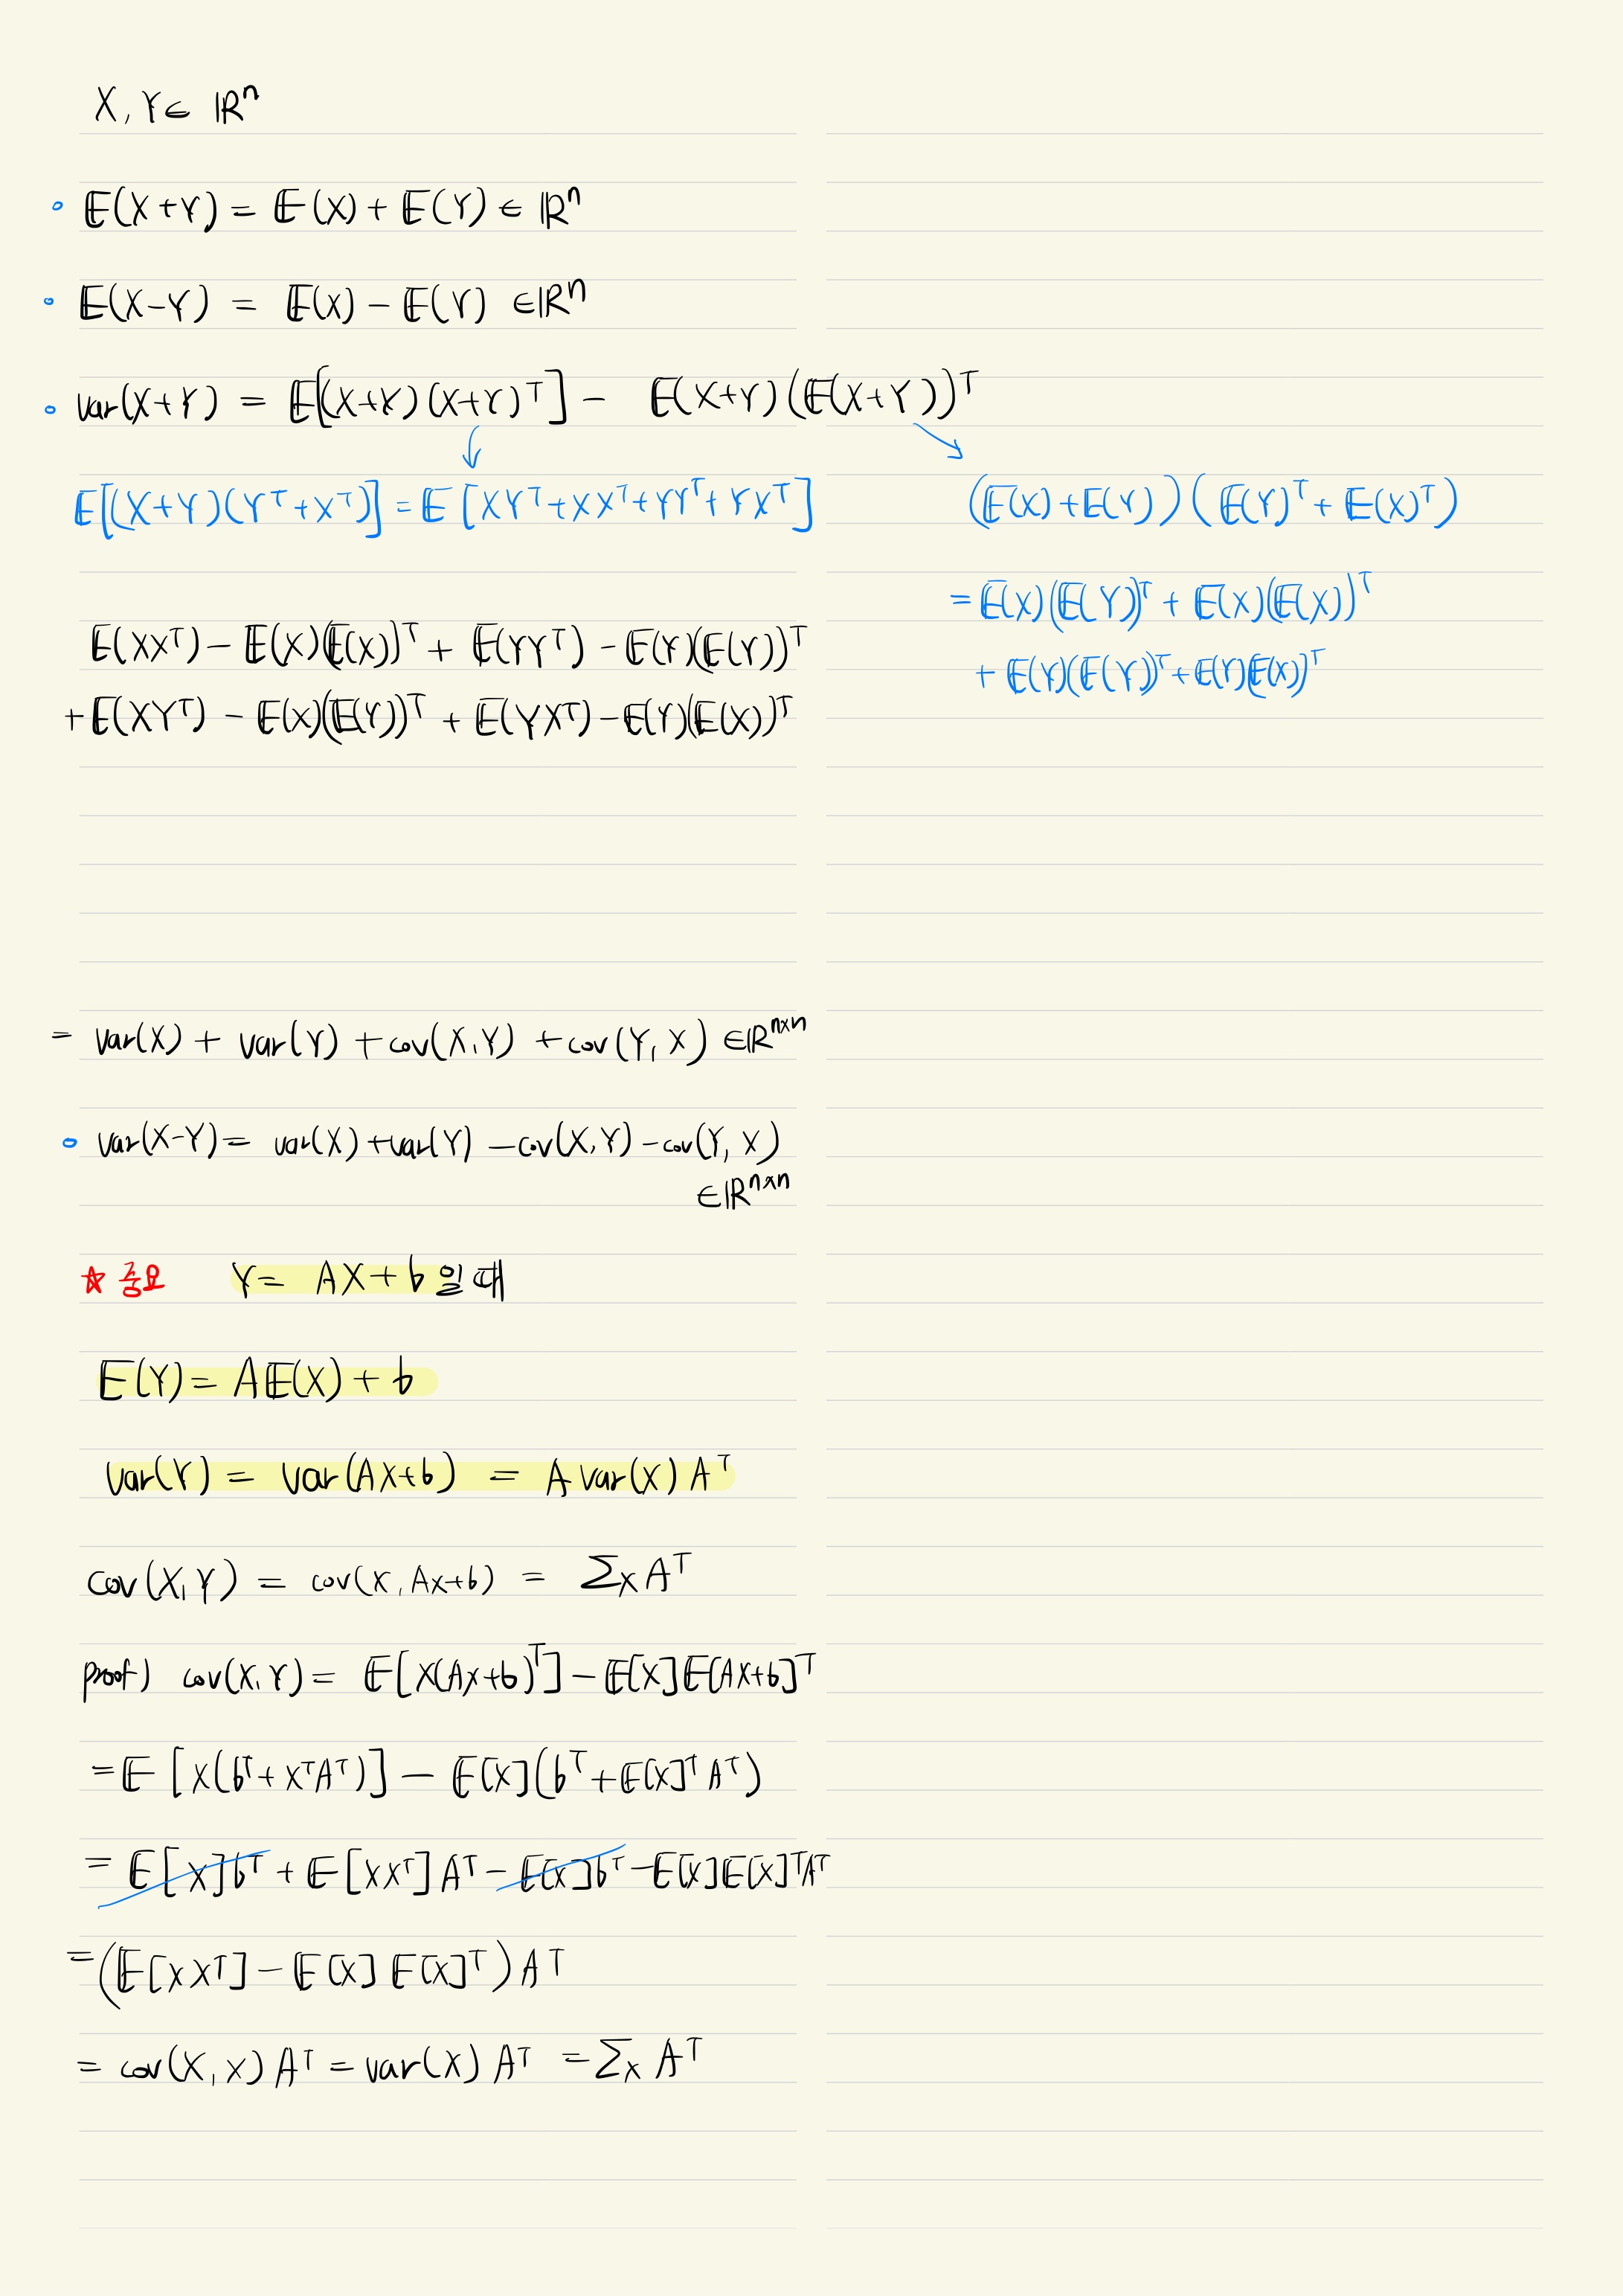 X, Y ∈ ℝⁿ
𝔼(X+Y) = 𝔼(X) + 𝔼(Y) ∈ ℝⁿ
𝔼(X-Y) = 𝔼(X) - 𝔼(Y) ∈ ℝⁿ
var(X+Y) = 𝔼[(X+Y)(X+Y)ᵀ] - 𝔼(X+Y)(𝔼(X+Y))ᵀ
𝔼[(X+Y)(Yᵀ+Xᵀ)] = 𝔼[XYᵀ+XXᵀ+YYᵀ+YXᵀ]
(𝔼(X)+𝔼(Y))(𝔼(Y)ᵀ+𝔼(X)ᵀ)
= 𝔼(X)(𝔼(Y))ᵀ + 𝔼(X)(𝔼(X))ᵀ
+ 𝔼(Y)(𝔼(Y))ᵀ + 𝔼(Y)(𝔼(X))ᵀ
𝔼(XXᵀ) - 𝔼(X)(𝔼(X))ᵀ + 𝔼(YYᵀ) - 𝔼(Y)(𝔼(Y))ᵀ
+ 𝔼(XYᵀ) - 𝔼(X)(𝔼(Y))ᵀ + 𝔼(YXᵀ) - 𝔼(Y)(𝔼(X))ᵀ
= var(X) + var(Y) + cov(X,Y) + cov(Y,X) ∈ ℝⁿˣⁿ
var(X-Y) = var(X) + var(Y) - cov(X,Y) - cov(Y,X)
∈ ℝⁿˣⁿ
☆ 중요 Y = AX+b 일 때
𝔼(Y) = A𝔼(X) + b
var(Y) = var(AX+b) = A var(X) Aᵀ
cov(X,Y) = cov(X, AX+b) = Σ_X Aᵀ
proof) cov(X,Y) = 𝔼[X(AX+b)ᵀ] - 𝔼[X]𝔼[AX+b]ᵀ
= 𝔼[X(bᵀ+XᵀAᵀ)] - 𝔼[X](bᵀ+𝔼[X]ᵀAᵀ)
= 𝔼[X]bᵀ + 𝔼[XXᵀ]Aᵀ - 𝔼[X]bᵀ - 𝔼[X]𝔼[X]ᵀAᵀ
= (𝔼[XXᵀ] - 𝔼[X]𝔼[X]ᵀ)Aᵀ
= cov(X,X)Aᵀ = var(X)Aᵀ = Σ_X Aᵀ